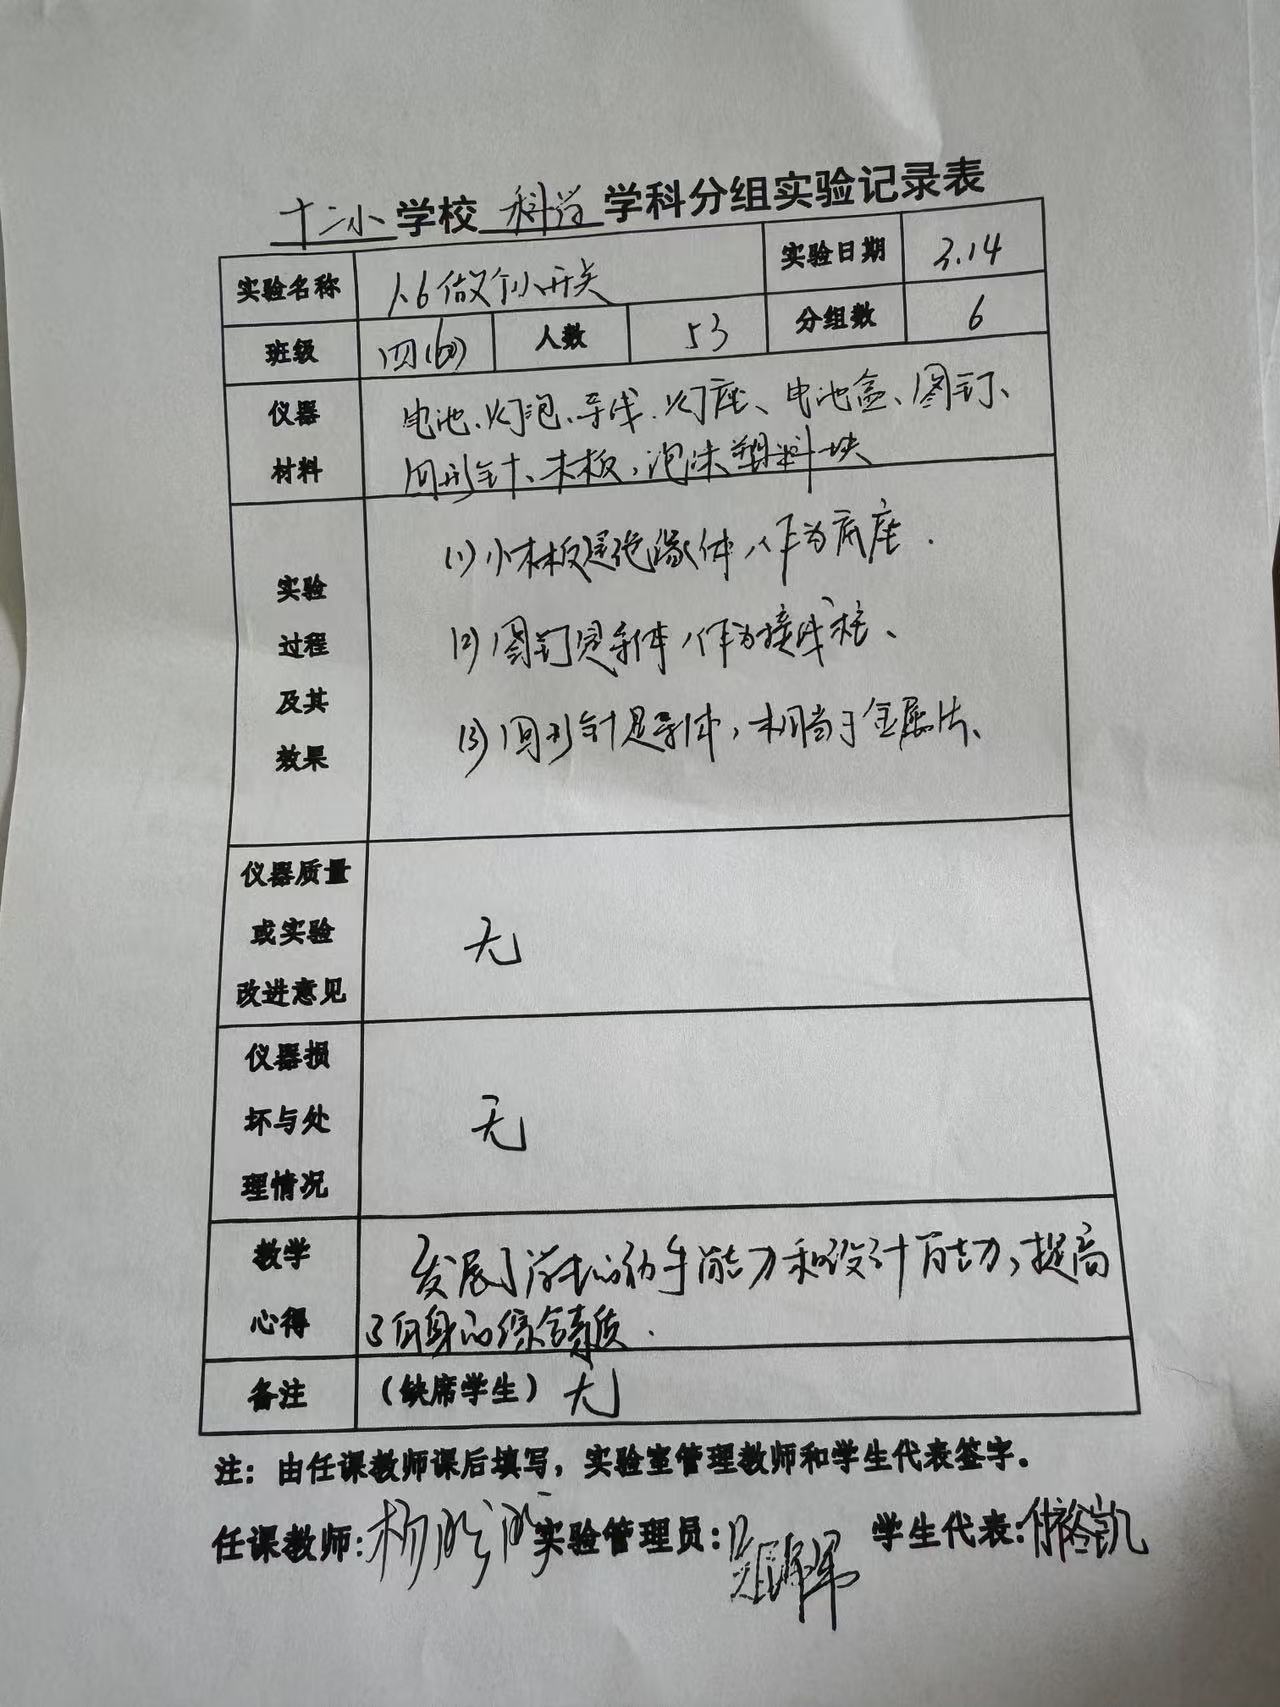 十二小学校 科学 学科分组实验记录表
实验名称 1.6做个小开关 实验日期 3.14
班级 四(6) 人数 53 分组数 6
仪器材料 电池、灯泡、导线、灯座、电池盒、图钉、
回形针、木板、泡沫塑料块
实验
过程
及其
效果
(1)小木板是绝缘体,作为底座.
(2)图钉是导体,作为接线柱、
(3)回形针是导体,相当于金属片、
仪器质量
或实验
改进意见
无
仪器损
坏与处
理情况
无
教学
心得
发展了学生的动手能力和设计能力,提高
了自身的综合素质.
备注 (缺席学生) 无
注:由任课教师课后填写,实验室管理教师和学生代表签字。
任课教师: 杨 实验管理员: 学生代表: